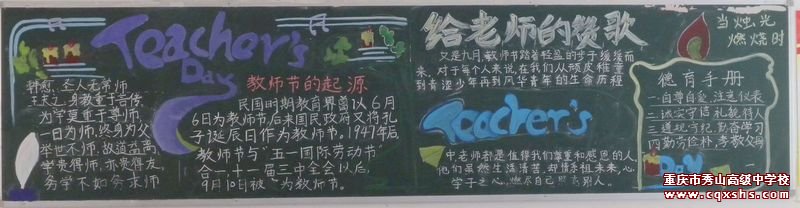 Teacher's
Day
韩愈：圣人无常师
王夫之：身教重于言传
为学莫重于尊师
一日为师，终身为父
举世不师，故道益离
学贵得师，亦贵得友
务学不如务求师
教师节的起源
民国时期教育界离以6月
6日为教师节，后来国民政府又将孔
子诞辰日作为教师节。1947年后
教师节与“五一国际劳动节”
合一，十一届三中全会以后，
9月10日被“为教师节。
给老师的赞歌
又是九月，教师节踏着轻盈的步子缓缓而
来，对于每个人来说，在我们从顽皮稚童
到青涩少年再到风华青年的生命历程
Teacher's
中老师都是值得我们尊重和感恩的人，
他们虽然生活清苦，却情系祖未来，心
学子之心，燃尽自己照亮别人。
当烛光
燃烧时
德育手册
一自尊自爱，注意仪表
二诚实守信 礼貌待人
三遵规守纪，勤奋学习
四勤劳俭朴，孝敬父母
Day
重庆市秀山高级中学校
www.cqxshs.com